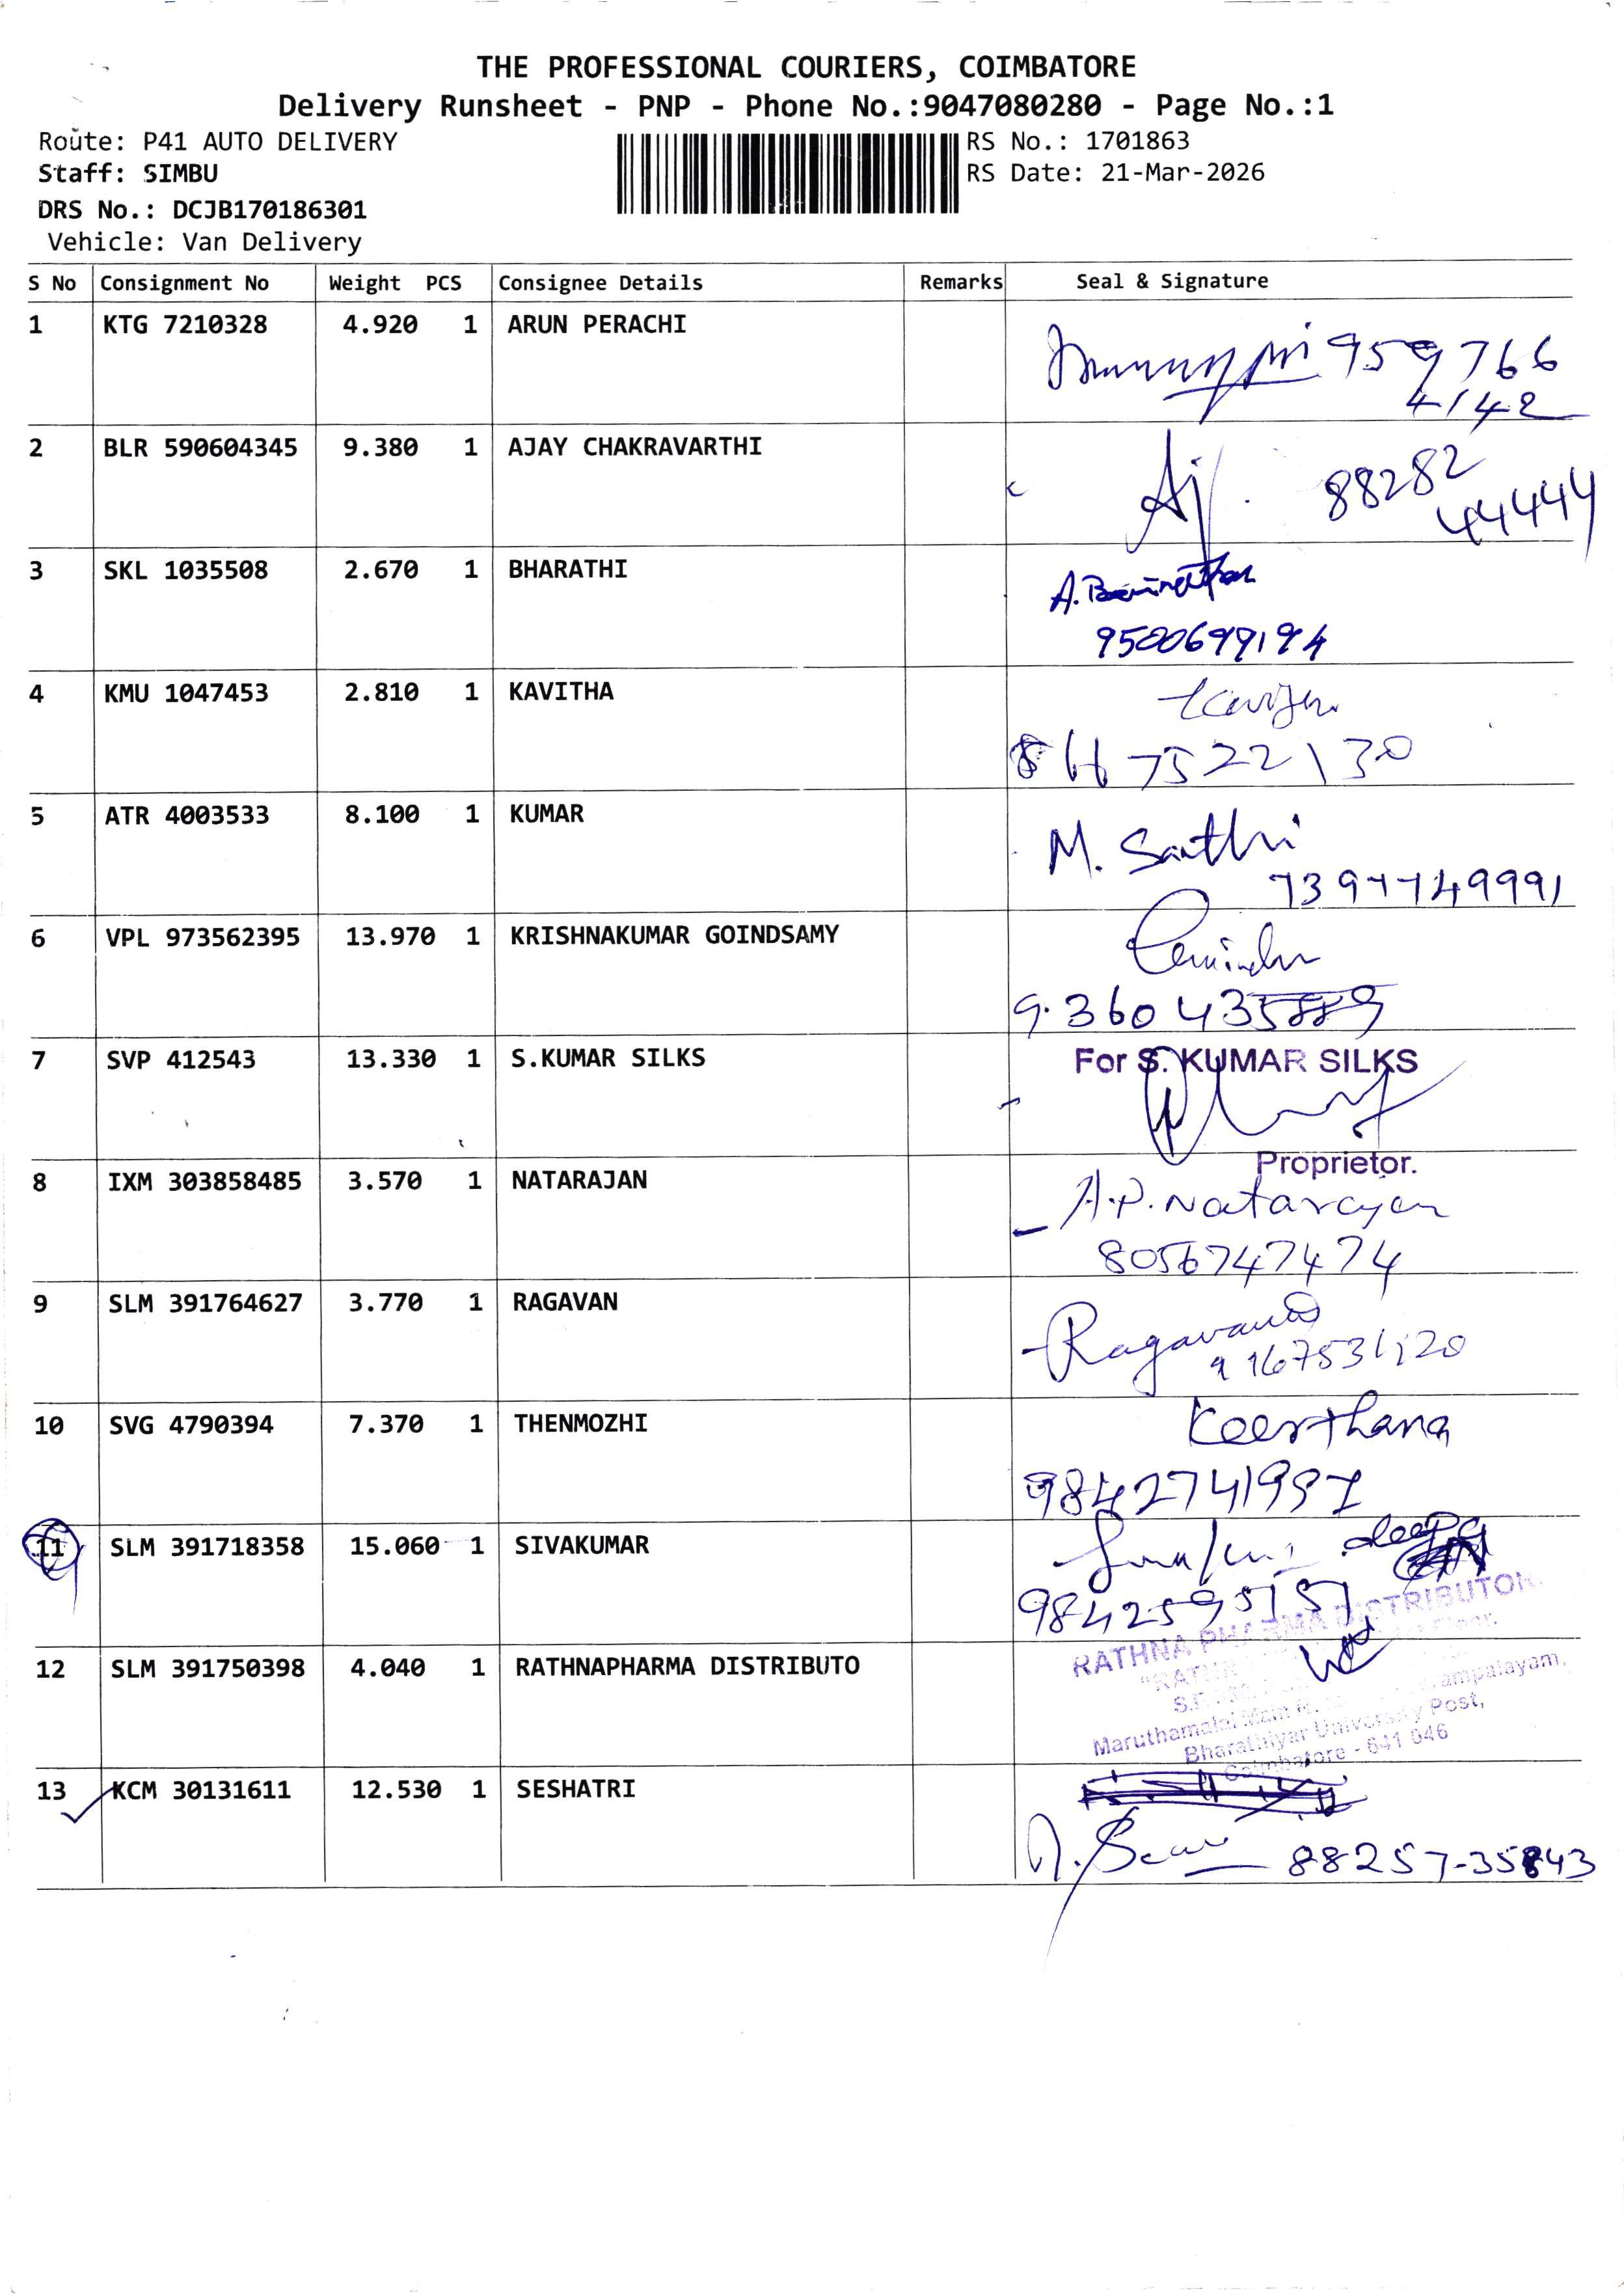 THE PROFESSIONAL COURIERS, COIMBATORE
Delivery Runsheet - PNP - Phone No.:9047080280 - Page No.:1
Route: P41 AUTO DELIVERY
RS No.: 1701863
Staff: SIMBU
RS Date: 21-Mar-2026
DRS No.: DCJB170186301
Vehicle: Van Delivery
S No Consignment No Weight PCS Consignee Details Remarks Seal & Signature
1 KTG 7210328 4.920 1 ARUN PERACHI
959766
4142
2 BLR 590604345 9.380 1 AJAY CHAKRAVARTHI
Aj
88282
44444
3 SKL 1035508 2.670 1 BHARATHI
9500699194
4 KMU 1047453 2.810 1 KAVITHA
5 ATR 4003533 8.100 1 KUMAR
M. Santhi
6 VPL 973562395 13.970 1 KRISHNAKUMAR GOINDSAMY
7 SVP 412543 13.330 1 S.KUMAR SILKS
For S. KUMAR SILKS
Proprietor.
8 IXM 303858485 3.570 1 NATARAJAN
A.P. Natarayan
8056747474
9 SLM 391764627 3.770 1 RAGAVAN
10 SVG 4790394 7.370 1 THENMOZHI
Keerthana
11 SLM 391718358 15.060 1 SIVAKUMAR
deepa
12 SLM 391750398 4.040 1 RATHNAPHARMA DISTRIBUTO
RATHNA PHARMA DISTRIBUTOR
Maruthamalai Main
Bharathiyar University Post,
Coimbatore - 641 046
13 KCM 30131611 12.530 1 SESHATRI
88257-35843